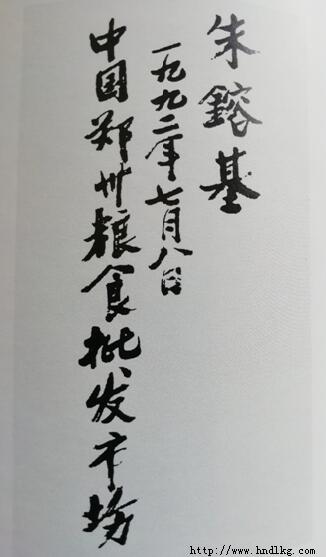 中国郑州粮食批发市场
一九九二年七月八日
朱鎔基
http://www.hndlkg.com